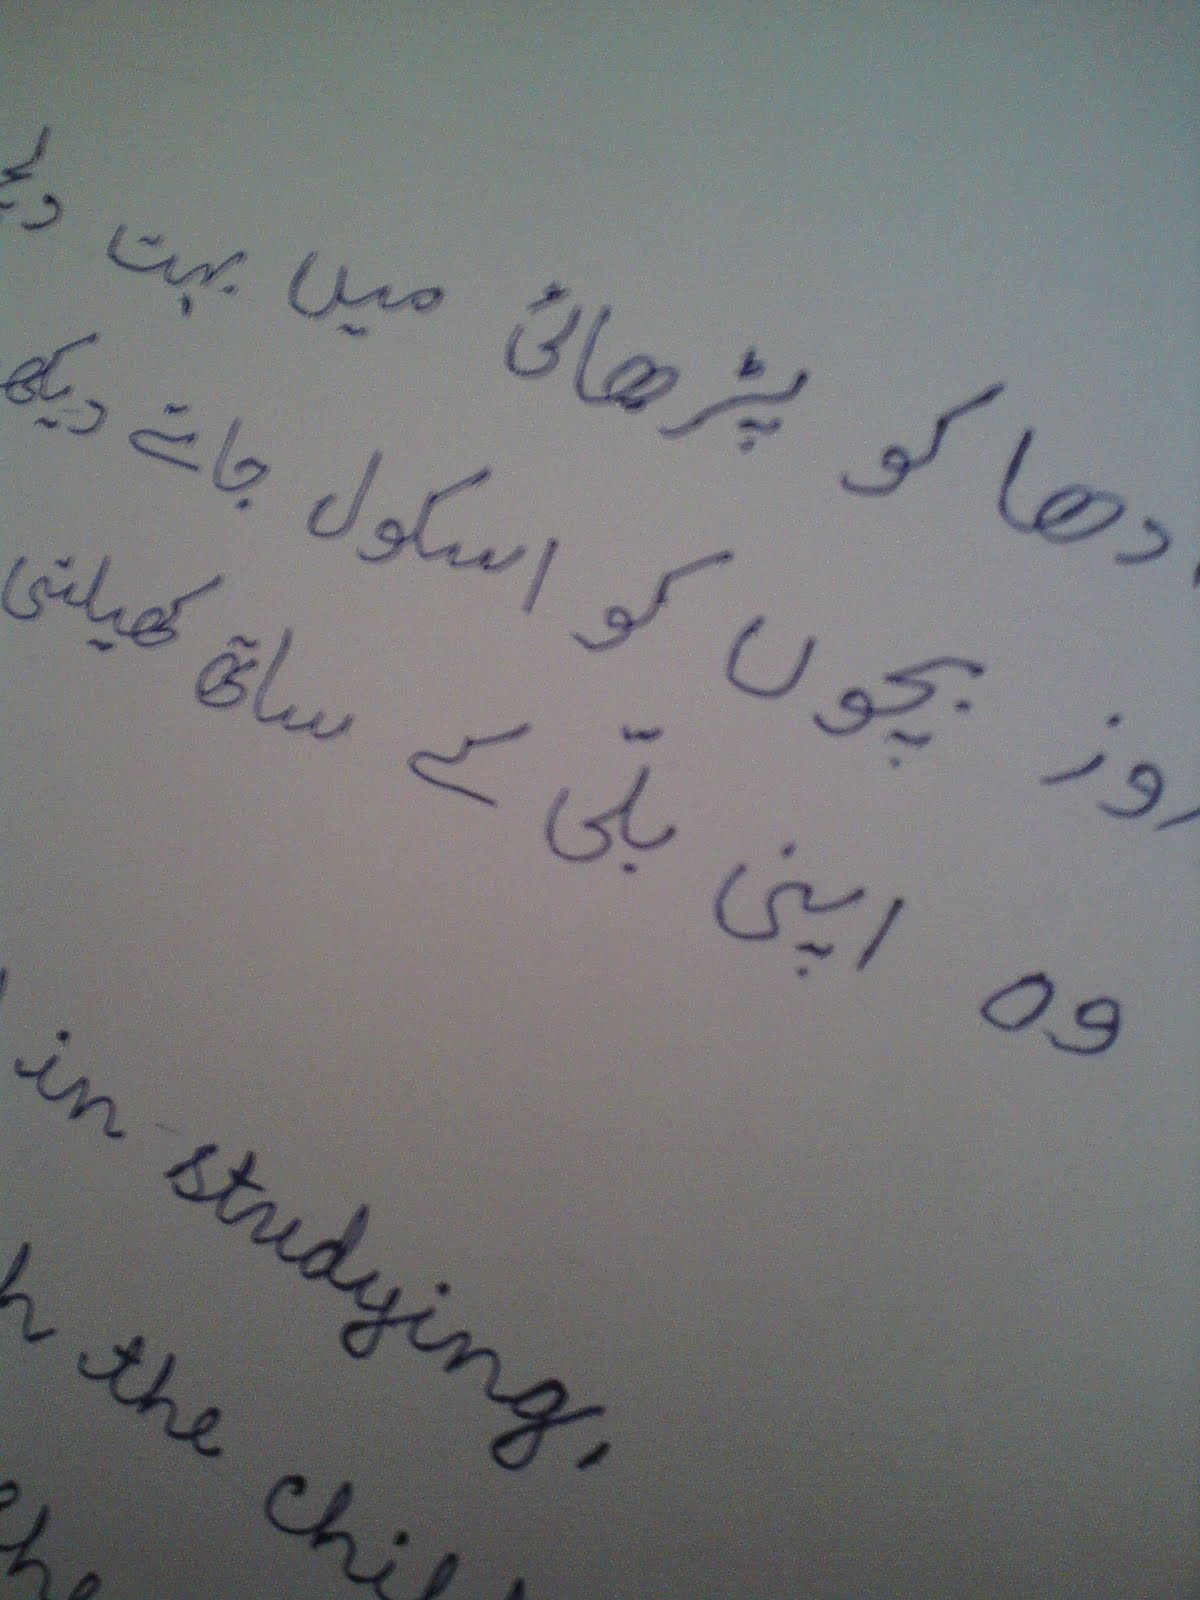 دھا کو پڑھائی میں بہت
روز بچوں کو اسکول جاتے دیکھ
وہ اپنی بلّی کے ساتھ کھیلتی
in studying,
h the chil
he